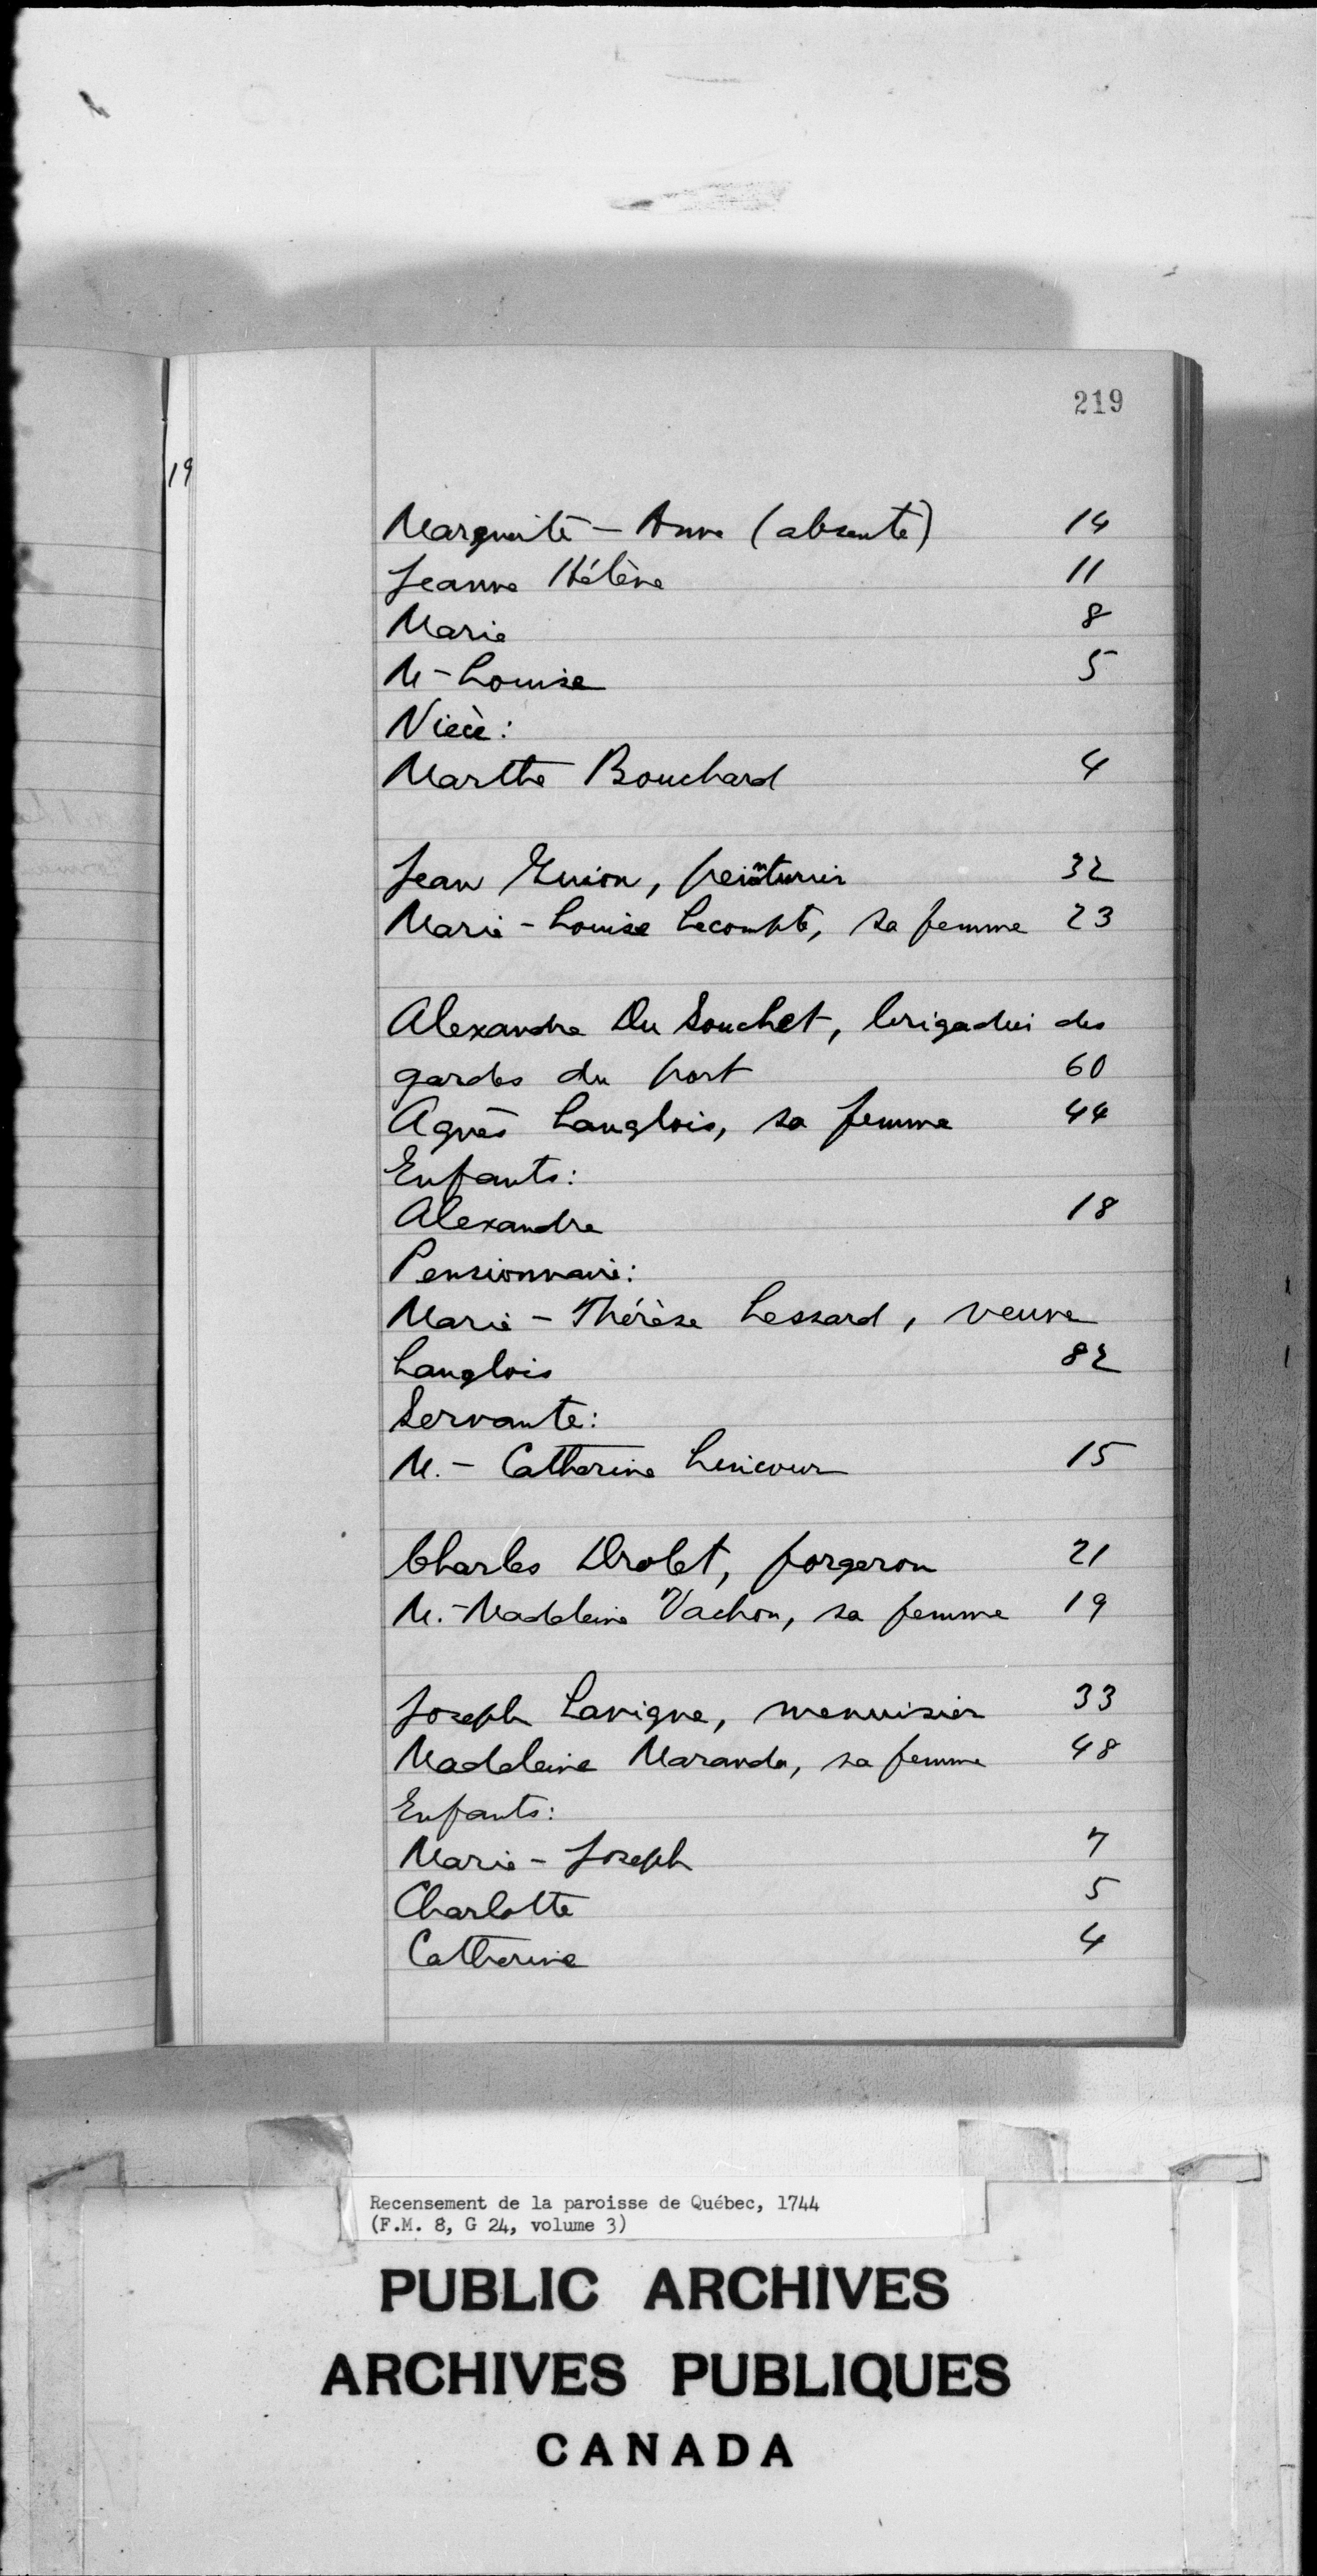 219
19
Marguerite - Anne (absente) 14
Jeanne Hélène 11
Marie 8
M-Louise 5
Nièce:
Marthe Bouchard 4
Jean Guion, 32
Marie-Louise Lecompte, sa femme 23
Alexandre Du Souchet, brigadier des
gardes du port 60
Agnès Langlois, sa femme 44
Enfants:
Alexandre 18
Pensionnaire:
Marie - Thérèse Lessard, veuve
Langlois 82
Servante:
M. - Catherine 15
Charles Drolet, forgeron 21
M.-Madeleine Vachon, sa femme 19
Joseph Lavigne, menuisier 33
Madeleine Maranda, sa femme 48
Enfants:
Marie - Joseph 7
Charlotte 5
Catherine 4
Recensement de la paroisse de Québec, 1744
(F.M. 8, G 24, volume 3)
PUBLIC ARCHIVES
ARCHIVES PUBLIQUES
CANADA